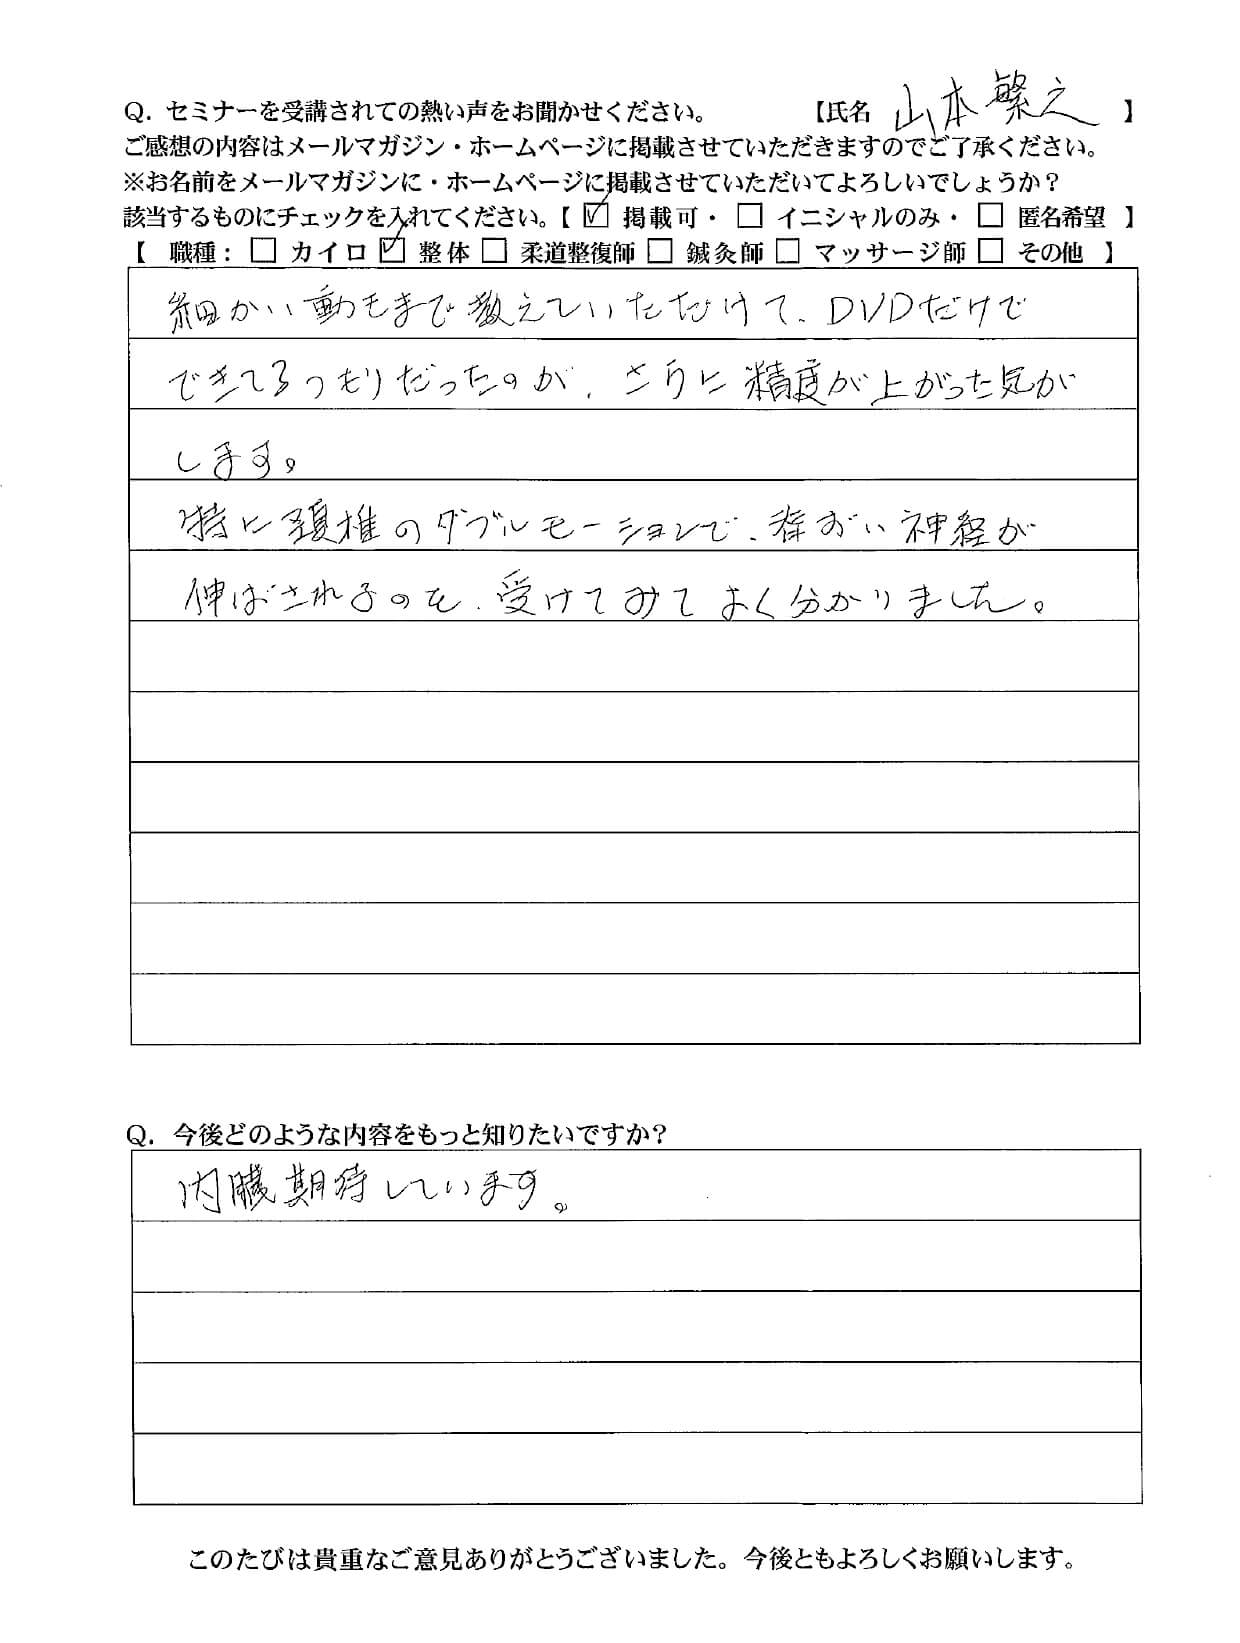 Q. セミナーを受講されての熱い声をお聞かせください。 【氏名 山本繁之 】
ご感想の内容はメールマガジン・ホームページに掲載させていただきますのでご了承ください。
※お名前をメールマガジンに・ホームページに掲載させていただいてよろしいでしょうか？
該当するものにチェックを入れてください。【 ☑ 掲載可・ □ イニシャルのみ・ □ 匿名希望 】
【 職種： □ カイロ ☑ 整体 □ 柔道整復師 □ 鍼灸師 □ マッサージ師 □ その他 】
細かい動きまで教えていただけて、DVDだけで
できてるつもりだったのが、さらに精度が上がった気が
します。
特に頚椎のダブルモーションで、神経が
伸ばされるのを、受けてみてよく分かりました。
Q. 今後どのような内容をもっと知りたいですか？
内臓期待しています。
このたびは貴重なご意見ありがとうございました。今後ともよろしくお願いします。